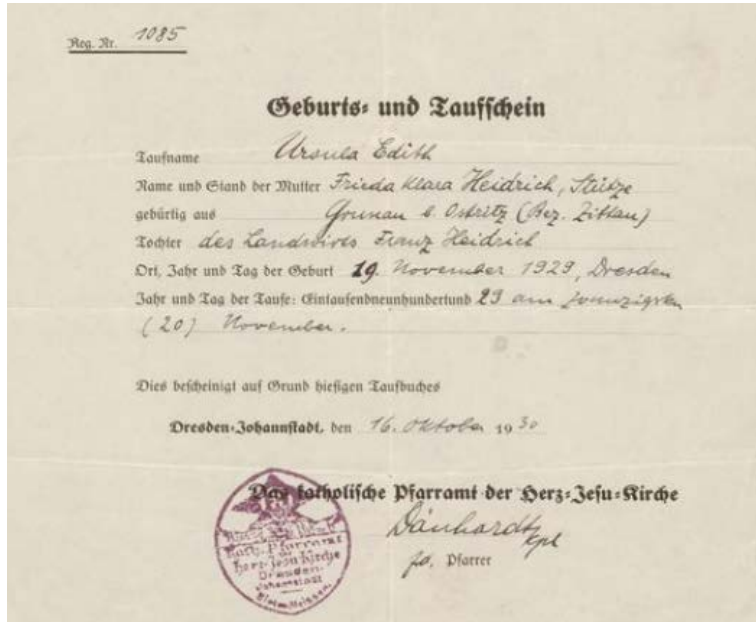 Reg. Nr. 1085
Geburts- und Taufschein
Taufname Ursula Edith
Name und Stand der Mutter Frieda Klara Heidrich, Stütze
gebürtig aus Grunau b. Ostritz (Bez. Zittau)
Tochter des Landwirts Franz Heidrich
Ort, Jahr und Tag der Geburt 19. November 1929, Dresden
Jahr und Tag der Taufe: Eintausendneunhundertund 29 am zwanzigsten
(20) November.
Dies bescheinigt auf Grund hiesigen Taufbuches
Dresden-Johannstadt, den 16. Oktober 1930
Das katholische Pfarramt der Herz-Jesu-Kirche
Dänhardt
Kpl
Pfarrer
Kath. Pfarramt
Herz-Jesu Kirche
Dresden-
Johannstadt
Bistum Meissen